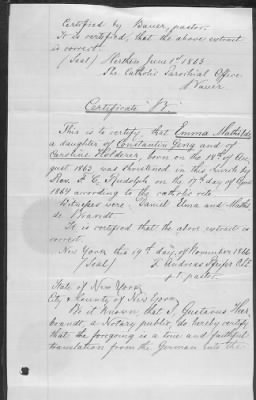 Certified by Bauer, pastor.
It is certified, that the above extract
is correct.
(Seal) June 1st 1863
The Catholic Parochial Office.
Certificate "B"
This is to certify, that Emma Mathilde
a daughter of Constantin and of
Caroline born on the 18th of Au-
gust 1863 was christened in this Church by
Rev. F. C. Rudolph on the 17th day of April
1864 according to the catholic rite
Witnesses were: Daniel and Mathil-
de Brandt.
It is certified that the above extract is
correct.
New York this 19th day of November 1866
(Seal)
p.t. pastor.
State of New York,
City & County of New York
Be it known, that I, Gustavus Her-
brandt, a Notary public, do hereby certify
that the foregoing is a true and faithful
translation from the German into the